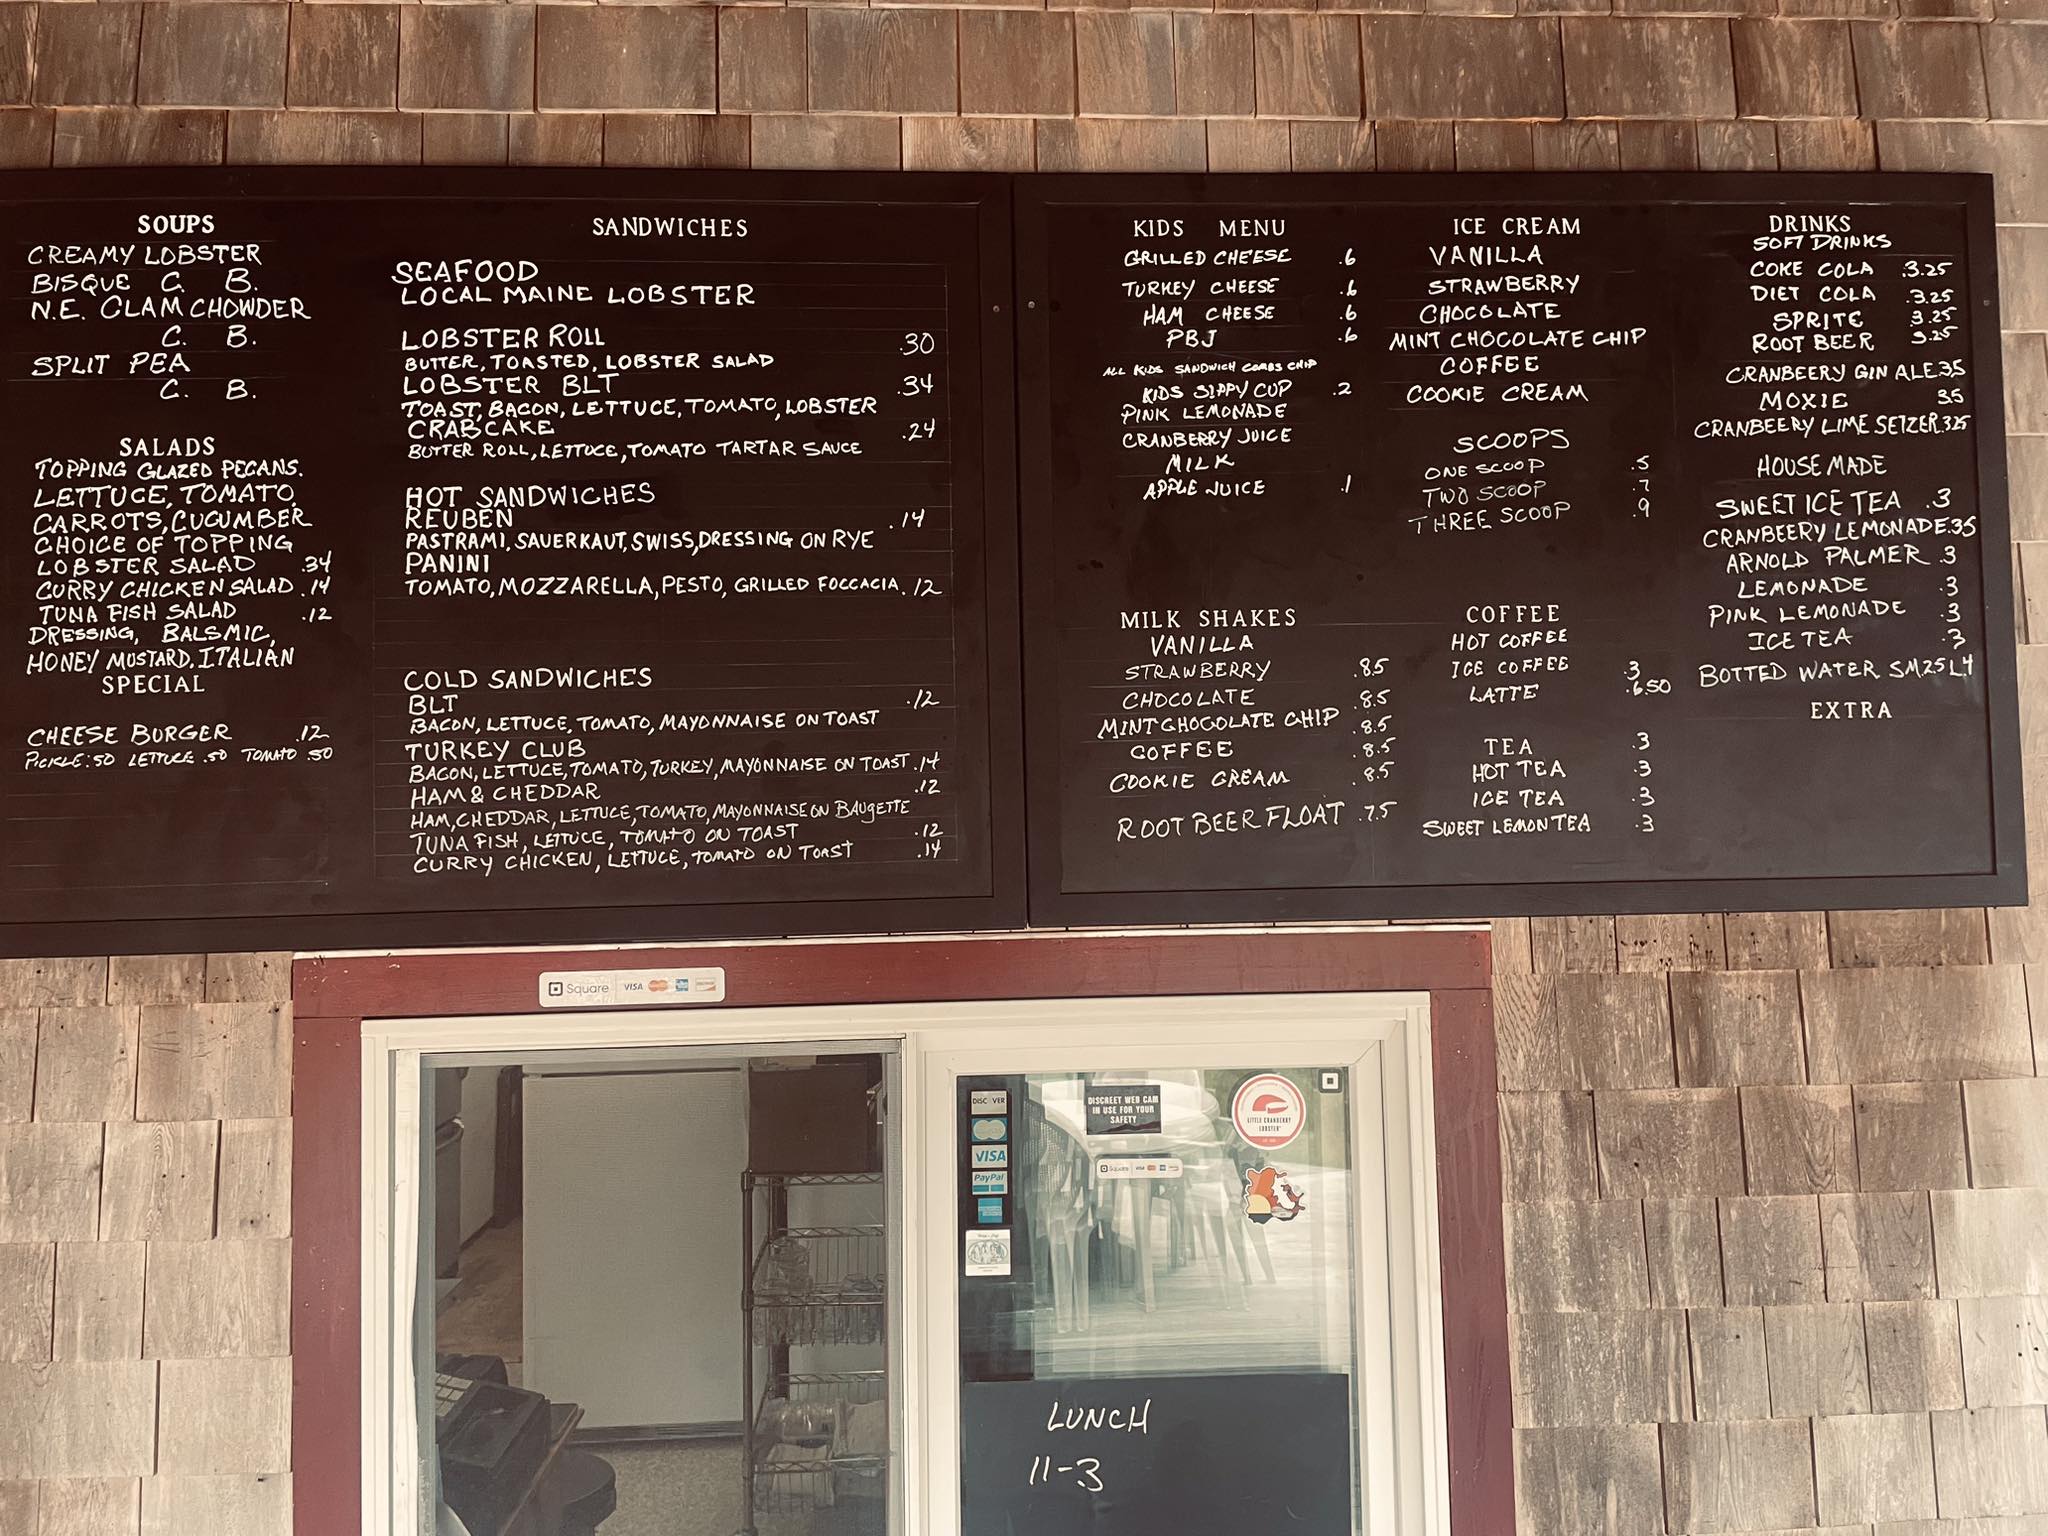 SOUPS
CREAMY LOBSTER
BISQUE C. B.
N.E. CLAM CHOWDER
C. B.
SPLIT PEA
C. B.
SALADS
TOPPING GLAZED PECANS.
LETTUCE, TOMATO,
CARROTS, CUCUMBER
CHOICE OF TOPPING
LOBSTER SALAD .34
CURRY CHICKEN SALAD .14
TUNA FISH SALAD .12
DRESSING, BALSMIC,
HONEY MUSTARD, ITALIAN
SPECIAL
CHEESE BURGER .12
PICKLE .50 LETTUCE .50 TOMATO .50
SANDWICHES
SEAFOOD
LOCAL MAINE LOBSTER
LOBSTER ROLL .30
BUTTER, TOASTED, LOBSTER SALAD
LOBSTER BLT .34
TOAST, BACON, LETTUCE, TOMATO, LOBSTER
CRABCAKE .24
BUTTER ROLL, LETTUCE, TOMATO TARTAR SAUCE
HOT SANDWICHES
REUBEN .14
PASTRAMI, SAUERKAUT, SWISS, DRESSING ON RYE
PANINI
TOMATO, MOZZARELLA, PESTO, GRILLED FOCCACIA .12
COLD SANDWICHES
BLT .12
BACON, LETTUCE, TOMATO, MAYONNAISE ON TOAST
TURKEY CLUB
BACON, LETTUCE, TOMATO, TURKEY, MAYONNAISE ON TOAST .14
HAM & CHEDDAR .12
HAM, CHEDDAR, LETTUCE, TOMATO, MAYONNAISE ON BAUGETTE
TUNA FISH, LETTUCE, TOMATO ON TOAST .12
CURRY CHICKEN, LETTUCE, TOMATO ON TOAST .14
KIDS MENU
GRILLED CHEESE .6
TURKEY CHEESE .6
HAM CHEESE .6
PBJ .6
ALL KIDS SANDWICH COMBS CHIP
KIDS SIPPY CUP .2
PINK LEMONADE
CRANBERRY JUICE
MILK
APPLE JUICE .1
MILK SHAKES
VANILLA
STRAWBERRY .8.5
CHOCOLATE .8.5
MINT CHOCOLATE CHIP .8.5
COFFEE .8.5
COOKIE CREAM .8.5
ROOT BEER FLOAT .7.5
ICE CREAM
VANILLA
STRAWBERRY
CHOCOLATE
MINT CHOCOLATE CHIP
COFFEE
COOKIE CREAM
SCOOPS
ONE SCOOP .5
TWO SCOOP .7
THREE SCOOP .9
COFFEE
HOT COFFEE
ICE COFFEE .3
LATTE .6.50
TEA .3
HOT TEA .3
ICE TEA .3
SWEET LEMON TEA .3
DRINKS
SOFT DRINKS
COKE COLA .3.25
DIET COLA .3.25
SPRITE 3.25
ROOT BEER 3.25
CRANBEERY GIN ALE 3.5
MOXIE 35
CRANBEERY LIME SETZER 3.25
HOUSE MADE
SWEET ICE TEA .3
CRANBEERY LEMONADE .35
ARNOLD PALMER .3
LEMONADE .3
PINK LEMONADE .3
ICE TEA .3
BOTTED WATER SM.25 L.4
EXTRA
Square VISA
DISCOVER
VISA
PayPal
DISCREET WEB CAM
IN USE FOR YOUR
SAFETY
Square VISA
LITTLE CRANBERRY
LOBSTER
LUNCH
11-3